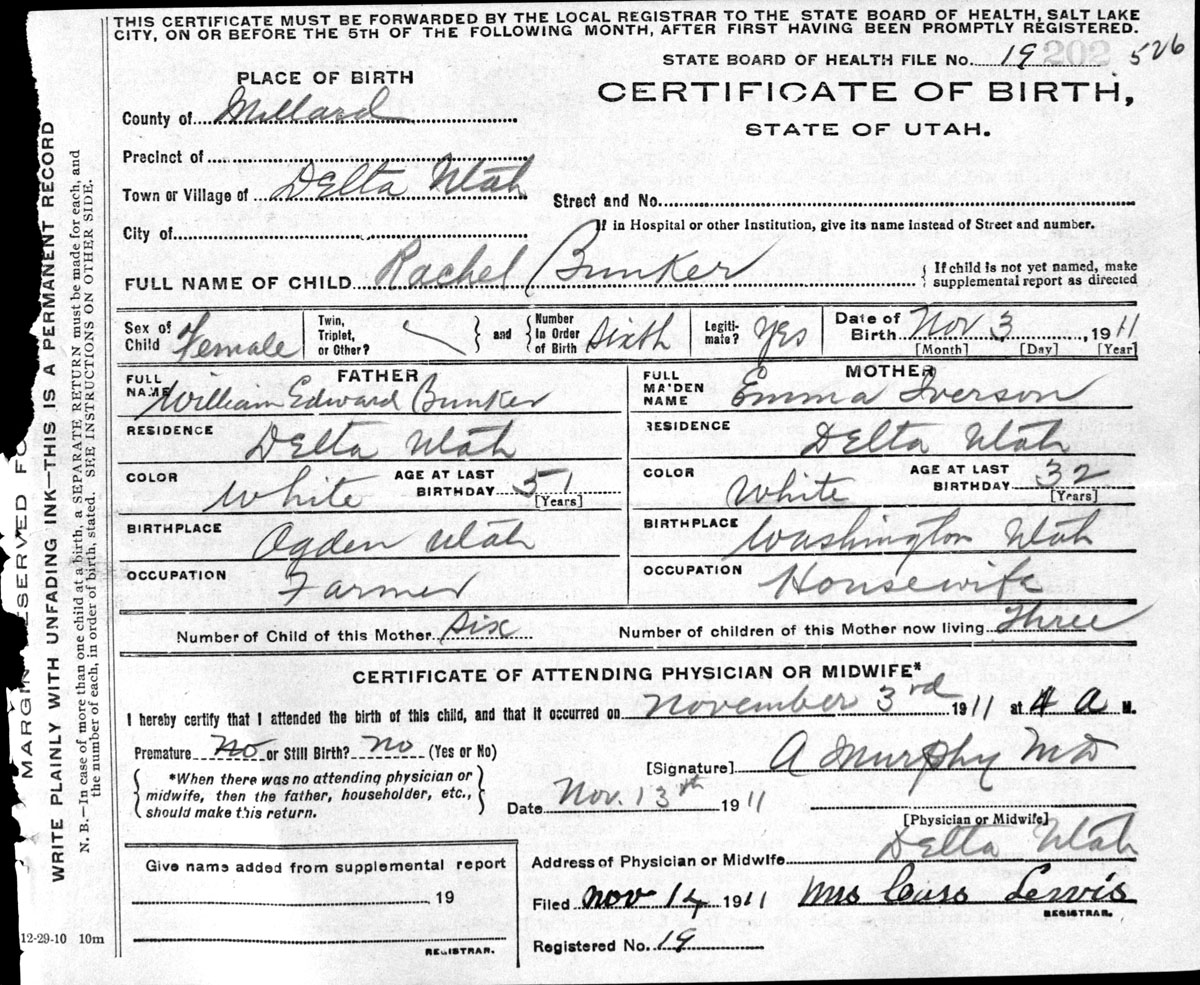 THIS CERTIFICATE MUST BE FORWARDED BY THE LOCAL REGISTRAR TO THE STATE BOARD OF HEALTH, SALT LAKE
CITY, ON OR BEFORE THE 5TH OF THE FOLLOWING MONTH, AFTER FIRST HAVING BEEN PROMPTLY REGISTERED.
STATE BOARD OF HEALTH FILE No. 19 202 526
PLACE OF BIRTH
CERTIFICATE OF BIRTH,
STATE OF UTAH.
County of Millard
Precinct of
Town or Village of Delta Utah
Street and No.
City of
If in Hospital or other Institution, give its name instead of Street and number.
FULL NAME OF CHILD Rachel Bunker
If child is not yet named, make
supplemental report as directed
Sex of Child Female
Twin, Triplet, or Other?
and
Number In Order of Birth Sixth
Legiti-mate? Yes
Date of Birth Nov 3, 1911
[Month] [Day] [Year]
FATHER
FULL NAME William Edward Bunker
MOTHER
FULL MAIDEN NAME Emma Iverson
RESIDENCE Delta Utah
RESIDENCE Delta Utah
COLOR White
AGE AT LAST BIRTHDAY 51
[Years]
COLOR White
AGE AT LAST BIRTHDAY 32
[Years]
BIRTHPLACE Ogden Utah
BIRTHPLACE Washington Utah
OCCUPATION Farmer
OCCUPATION Housewife
Number of Child of this Mother Six
Number of children of this Mother now living Three
CERTIFICATE OF ATTENDING PHYSICIAN OR MIDWIFE*
I hereby certify that I attended the birth of this child, and that it occurred on November 3rd 1911 at 4 A M.
Premature No or Still Birth? No (Yes or No)
*When there was no attending physician or
midwife, then the father, householder, etc.,
should make this return.
[Signature] A Murphy MD
Date Nov. 13th 1911
[Physician or Midwife]
Give name added from supplemental report
19
REGISTRAR.
Address of Physician or Midwife Delta Utah
Filed Nov 14 1911 Mrs Cass Lewis
REGISTRAR.
Registered No. 19
12-29-10 10m
MARGIN
WRITE PLAINLY WITH UNFADING INK—THIS IS A PERMANENT RECORD
N. B.—In case of more than one child at a birth, a SEPARATE RETURN must be made for each, and
the number of each, in order of birth, stated. SEE INSTRUCTIONS ON OTHER SIDE.